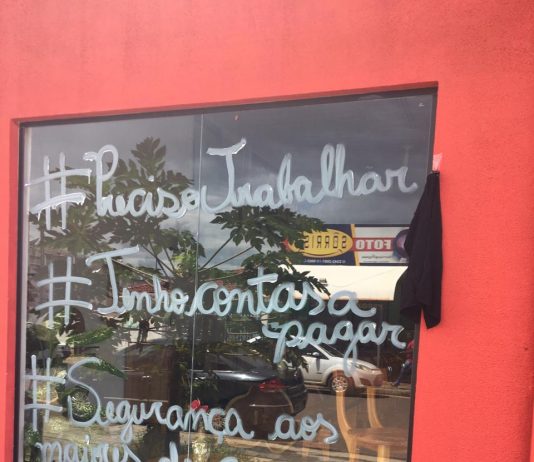 #PrecisoTrabalhar
#Tenho contas a
pagar
#Segurança aos
FOTO
SORRIS